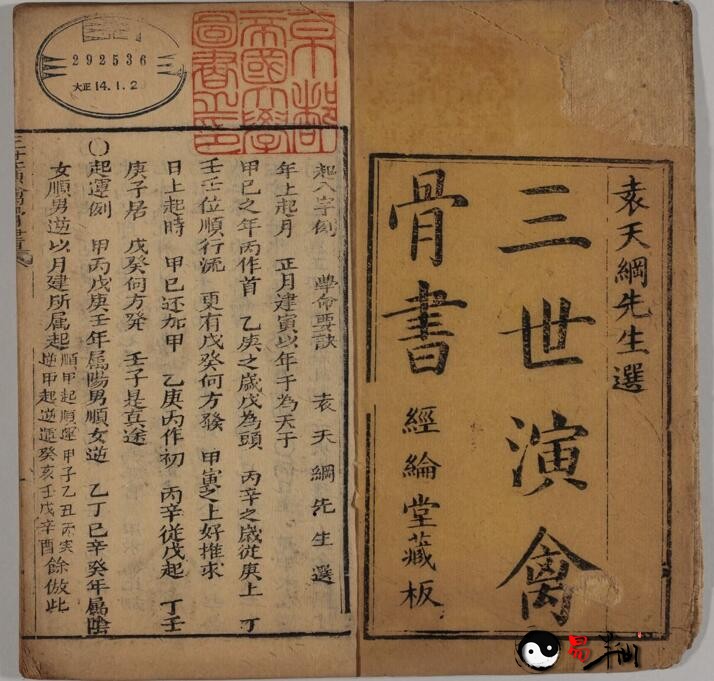 袁天綱先生選
三世演禽
骨書 經綸堂藏板
起八字例 學命要訣 袁天綱先生選
年上起月 正月建寅以年干為天子
甲巳之年丙作首 乙庚之歲戊為頭 丙辛之歲從庚上 丁
壬壬位順行流 更有戊癸何方發 甲寅之上好推求
日上起時 甲巳还加甲 乙庚丙作初 丙辛從戊起 丁壬
庚子居 戊癸何方発 壬子是真途
〇起運例 甲丙戊庚壬年属陽男順女逆 乙丁巳辛癸年属陰
女順男逆以月建所属起
順甲起順運甲子乙丑丙寅
逆甲起逆運癸亥壬戌辛酉
餘倣此
京都
帝國大學
圖書之印
292536
大正 14.1.2
易